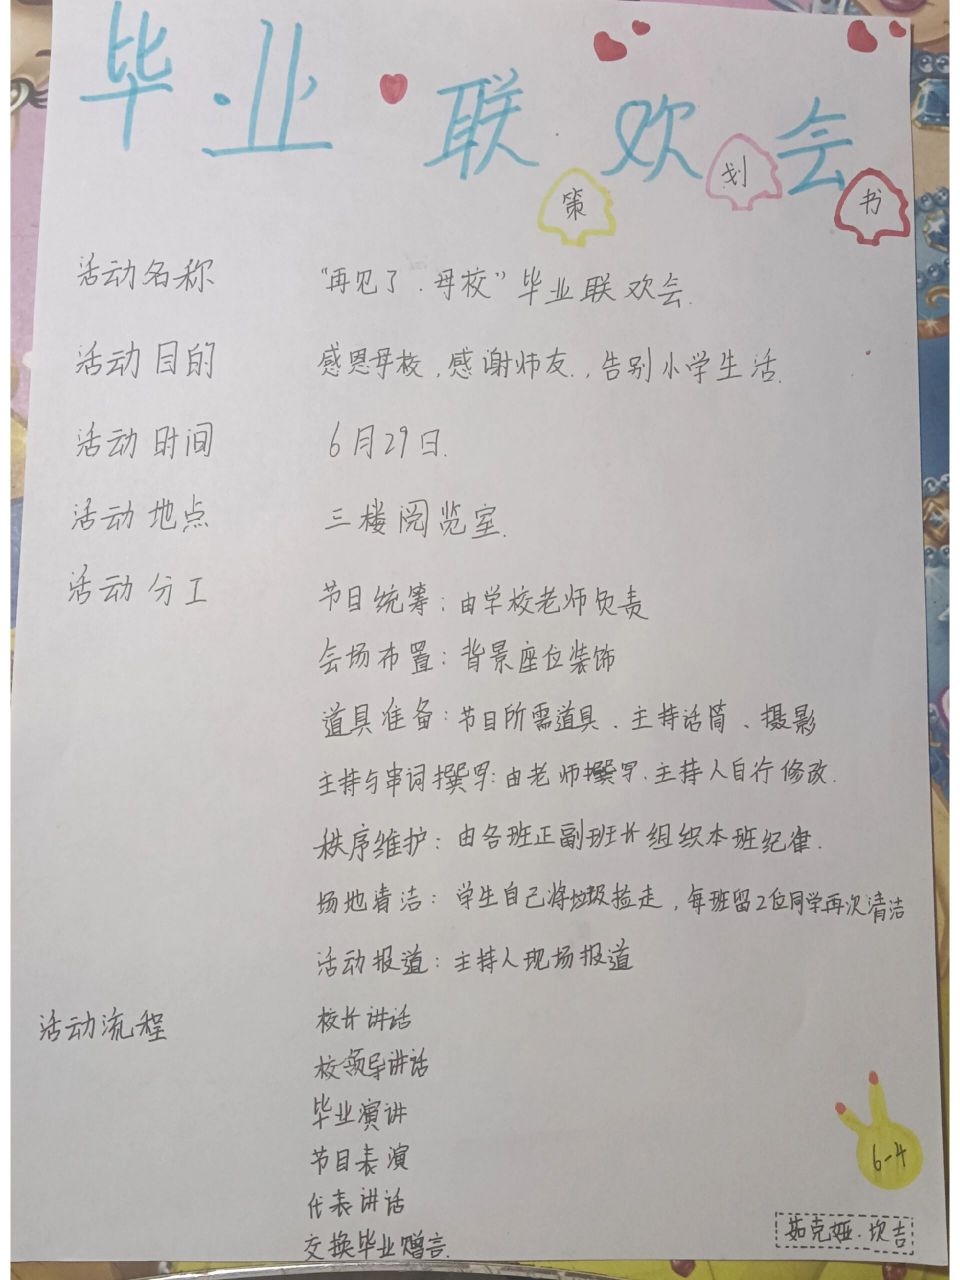 毕业联欢会
策划书
活动名称 “再见了.母校”毕业联欢会.
活动目的 感恩母校,感谢师友.,告别小学生活.
活动时间 6月29日.
活动地点 三楼阅览室.
活动分工 节目统筹:由学校老师负责
会场布置:背景座位装饰
道具准备:节目所需道具、主持话筒、摄影
主持与串词撰写:由老师撰写.主持人自行修改.
秩序维护:由各班正副班长组织本班纪律.
场地清洁:学生自己将垃圾捡走,每班留2位同学再次清洁
活动报道:主持人现场报道
活动流程 校长讲话
校领导讲话
毕业演讲
节目表演
代表讲话
交换毕业赠言.
6-4
茹克娅.坎吉